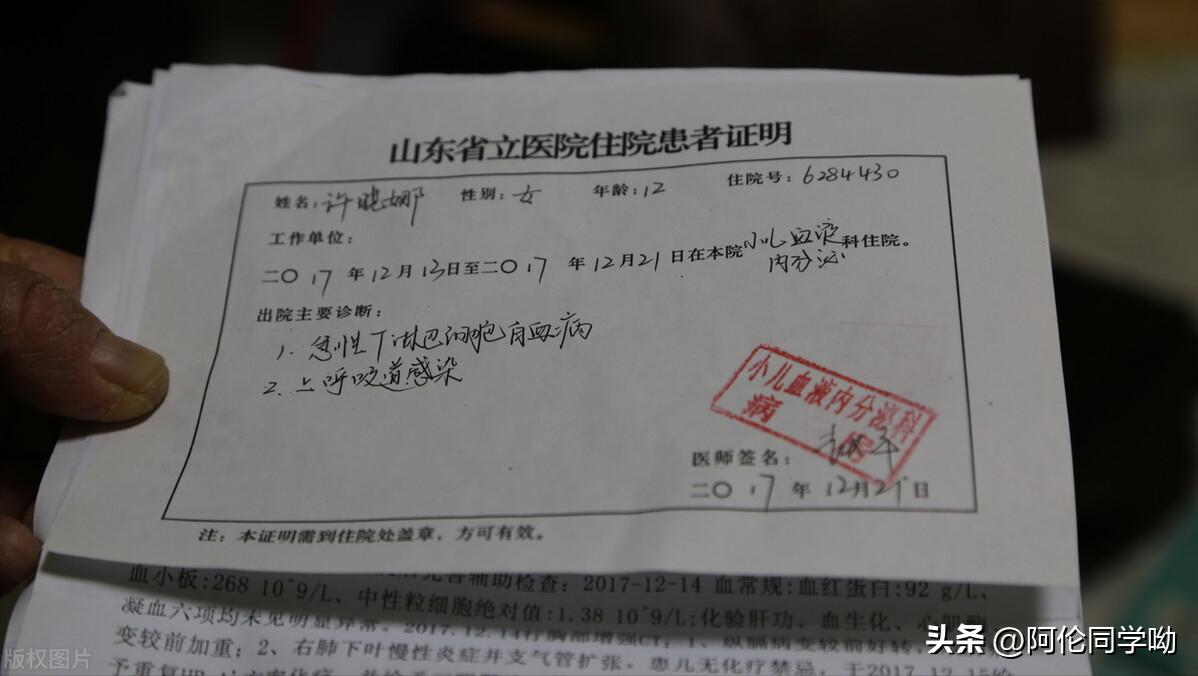 山东省立医院住院患者证明
姓名:许晓娜 性别:女 年龄:12 住院号:6284430
工作单位:
二〇17年12月13日至二〇17年12月21日在本院小儿血液内分泌科住院。
出院主要诊断:
1. 急性T淋巴细胞白血病
2. 上呼吸道感染
小儿血液内分泌科
病
医师签名:
二〇17年12月21日
注:本证明需到住院处盖章,方可有效。
辅助检查:2017-12-14 血常规:血红蛋白:92 g/L、
血小板:268 10^9/L、中性粒细胞绝对值:1.38 10^9/L;化验肝功、血生化、
凝血六项均未见明显异常。2017.12.14行胸部增强CT:1、纵膈病变较前好转,
变较前加重;2、右肺下叶慢性炎症并支气管扩张。患儿无化疗禁忌,于2017.12.15给
予重复
版权图片
头条@阿伦同学呦